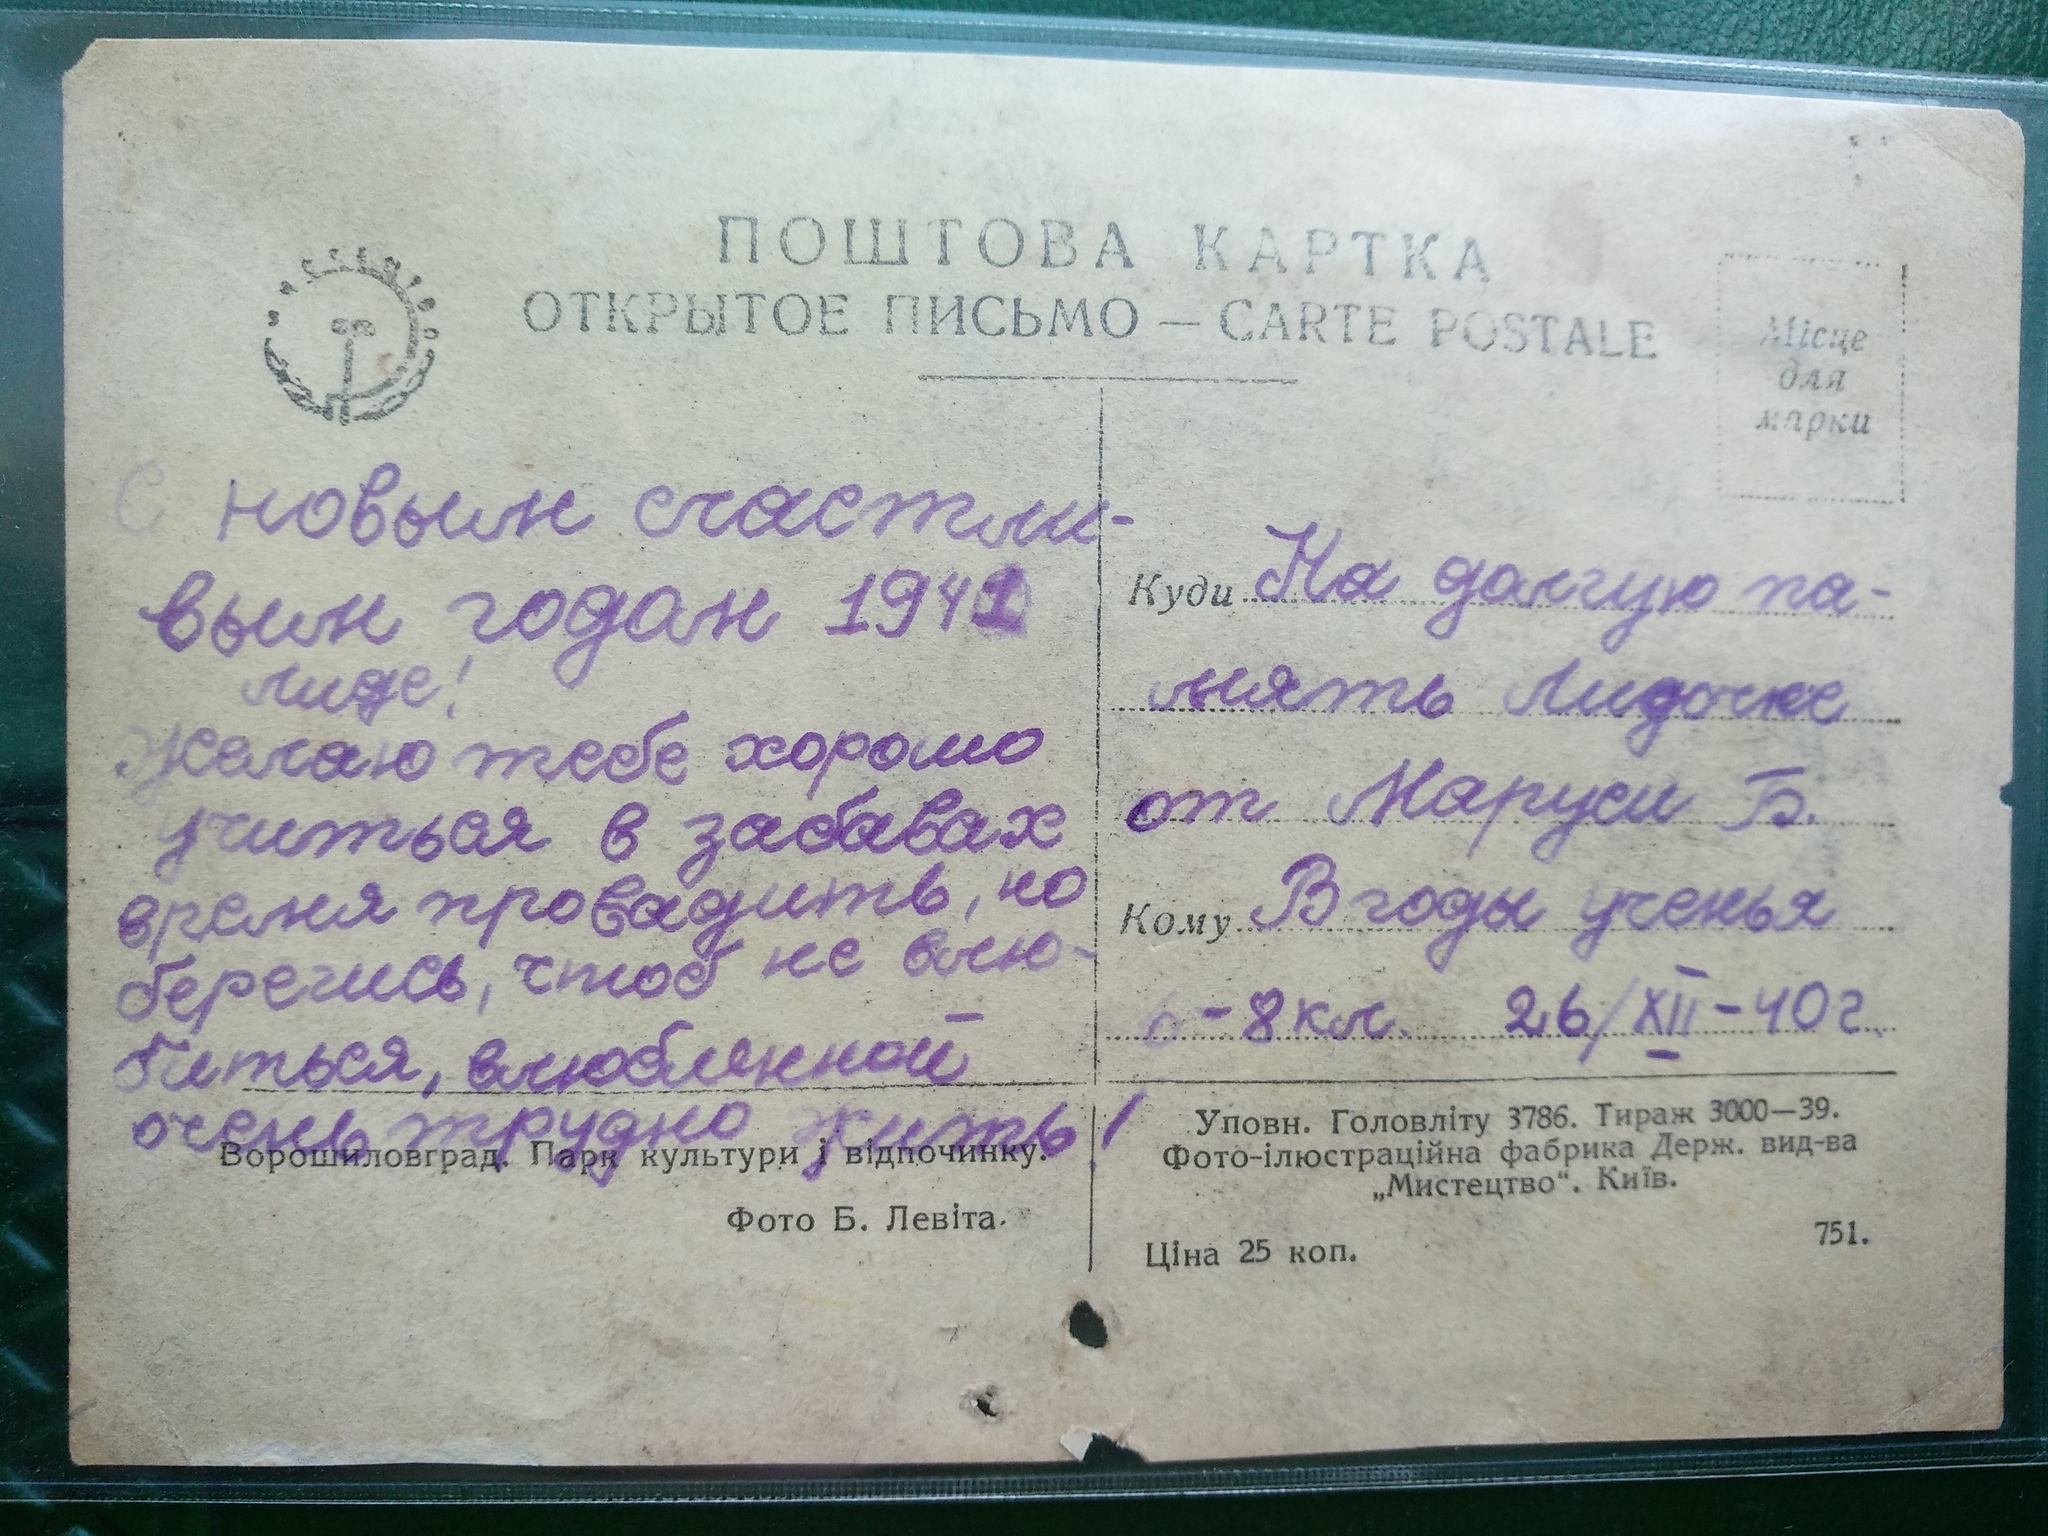 ПОШТОВА КАРТКА
ОТКРЫТОЕ ПИСЬМО — CARTE POSTALE
Місце
для
марки
С новым счастли-
вым годом 1941
Лиде!
Желаю тебе хорошо
учиться в забавах
время провадить, но
берегись, чтоб не влю-
биться, влюбленной
очень трудно жить!
Куди На долгую па-
мять Лидочке
от Маруси Б.
Кому В годы ученья
6-8 кл. 26/XII-40 г.
Ворошиловград. Парк культури і відпочинку.
Фото Б. Левіта.
Уповн. Головліту 3786. Тираж 3000—39.
Фото-ілюстраційна фабрика Держ. вид-ва
„Мистецтво“. Київ.
Ціна 25 коп.
751.